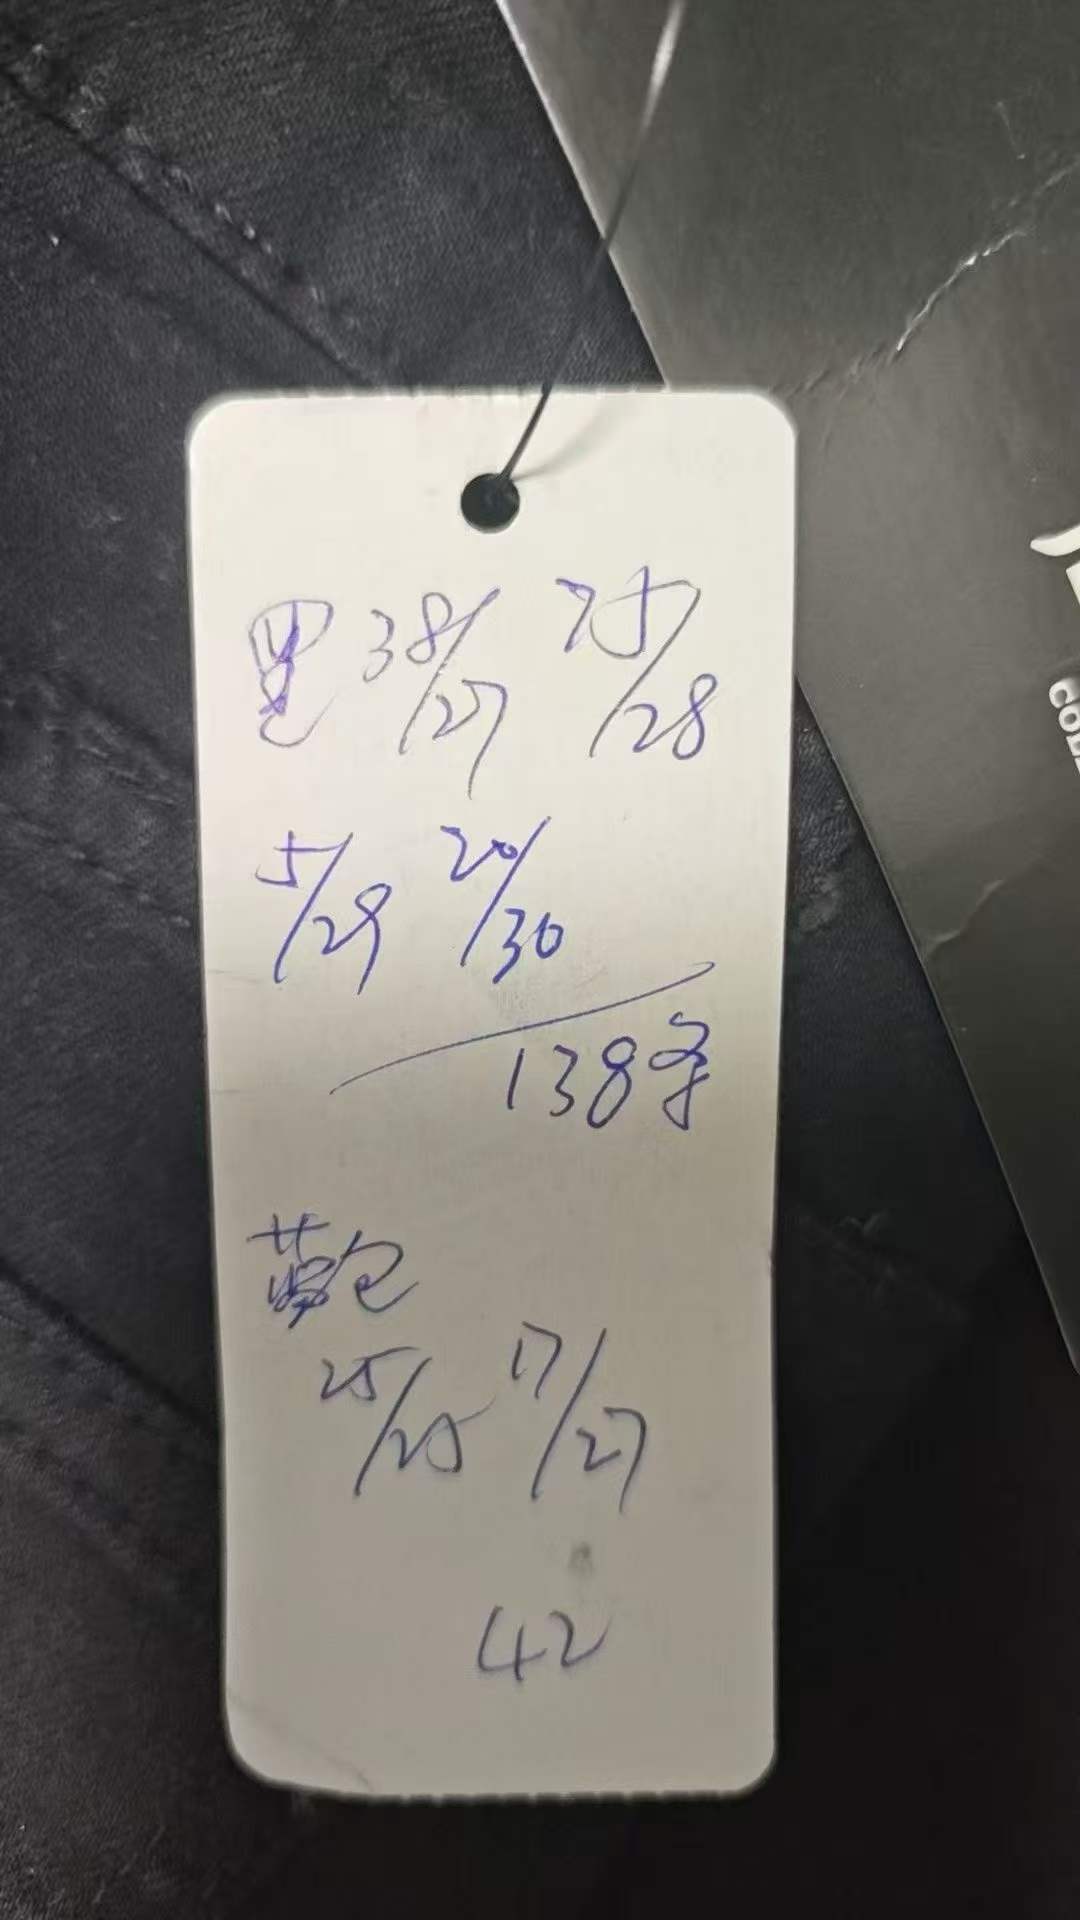 黑 38/27 75/28
5/29 20/30
138条
蓝色
25/25 17/27
42
COL